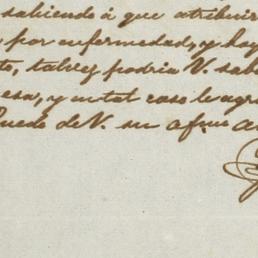 sabiendo á que atribuir
por enfermedad, y hay
to, talvez podria V. sab
esa, y en tal caso le agra
Quedo de V. su afmo